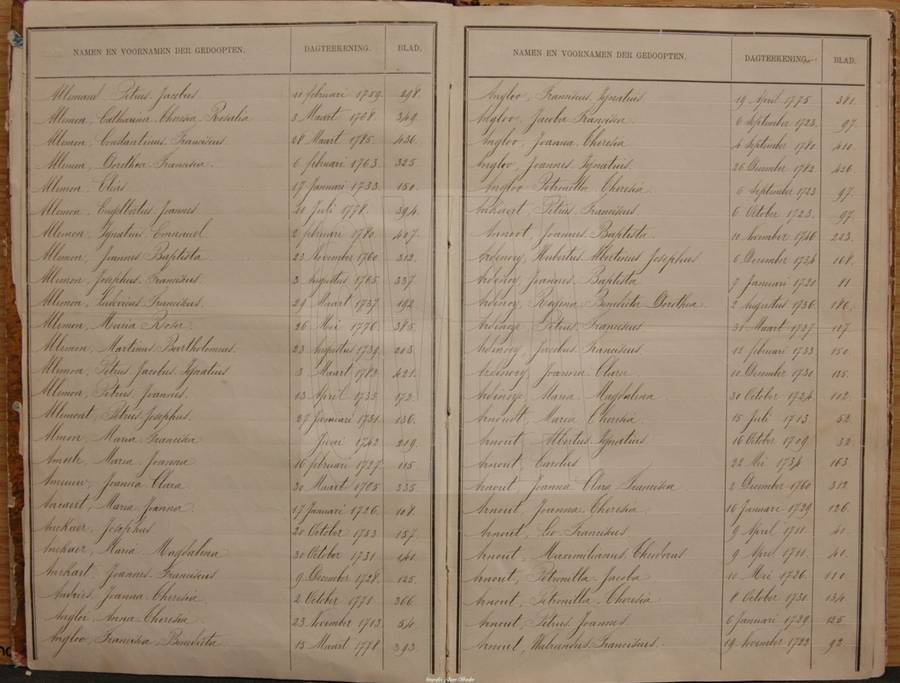 NAMEN EN VOORNAMEN DER GEDOOPTEN. DAGTEEKENING. BLAD.
Allemand Petrus Jacobus 11 februari 1759. 298.
Allemon, Catharina Theresia Rosalia 3 Maart 1768. 349.
Allemon, Constantinus Franciscus 28 Maart 1785. 436.
Allemon, Dorothea Francisca. 6 februari 1763. 325
Allemon, 17 Januari 1733. 150.
Allemon, Engelbertus Joannes 20 Juli 1778. 394.
Allemon, Ignatius Emanuel 2 februari 1780. 407.
Allemon, Joannes Baptista 23 November 1760. 312.
Allemon, Josephus Franciscus 3 Augustus 1765. 337.
Allemon, Ludovicus Franciscus 29 Maart 1737. 192
Allemon, Maria Rosa 26 Mei 1776. 385.
Allemon, Martinus Bartholomeus 23 Augustus 1739. 203.
Allemon, Petrus Jacobus Ignatius 3 Maart 1782. 421.
Allemon, Petrus Joannes 13 April 1735. 172.
Allemoat Petrus Josephus 27 Januari 1731. 136.
Almon, Maria Francisca Juni 1742. 219.
Maria Joanna 16 februari 1727. 115
Joanna Clara 30 Maart 1765. 335
Maria Joanna 17 Januari 1726. 108.
Anckaer, Josephus 20 October 1753. 157.
Anckaer, Maria Magdalena 30 October 1731. 141
Anckart, Joannes Franciscus 9 December 1728. 125.
Andries, Joanna Theresia 2 October 1771. 366.
Angloo Anna Theresia 23 November 1713. 54.
Angloo, Francisca Benedicta 15 Maart 1778. 393.
NAMEN EN VOORNAMEN DER GEDOOPTEN. DAGTEEKENING. BLAD.
Angloo, Franciscus Ignatius 19 April 1775. 381.
Angloo, Jacoba Francisca 6 September 1723. 97.
Angloo, Joanna Theresia 4 September 1780. 410.
Angloo, Joannes Ignatius 26 December 1782. 426.
Angloo Petronilla Theresia 6 September 1723. 97.
Ankaert, Petrus Franciscus 6 October 1723. 97.
Annoot, Joannes Baptista 10 November 1746. 223.
Ardenoy, Hubertus Albertinus Josephus 6 December 1734. 168.
Ardenoy, Joannes Baptista 7 Januari 1721 81
Ardenoy, Regina Benedicta Dorothea 2 Augustus 1736. 186.
Ardenoye, Petrus Franciscus 31 Maart 1727. 117.
Ardenoy, Jacobus Franciscus 12 februari 1733 150.
Ardenoy, Joanna Clara 10 December 1730. 135.
Ardenoye, Maria Magdalena 30 October 1724. 102.
Arnoudt, Maria Theresia 15 Juli 1713 52.
Arnout, Albertus Ignatius 16 October 1709. 32.
Arnout, Carolus 22 Mei 1734. 163.
Arnout, Joanna Clara Francisca 2 December 1760. 312
Arnout, Joanna Theresia 16 Januari 1729. 126.
Arnout, Leo Franciscus 9 April 1711. 40.
Arnout, Maximilianus Theodorus 9 April 1711. 40.
Arnout, Petronilla Jacoba 11 Mei 1726. 110.
Arnout, Petronilla Theresia 8 October 1730. 134.
Arnout, Petrus Joannes 6 Januari 1729. 125
Arnout, Franciscus. 19 November 1722. 92.